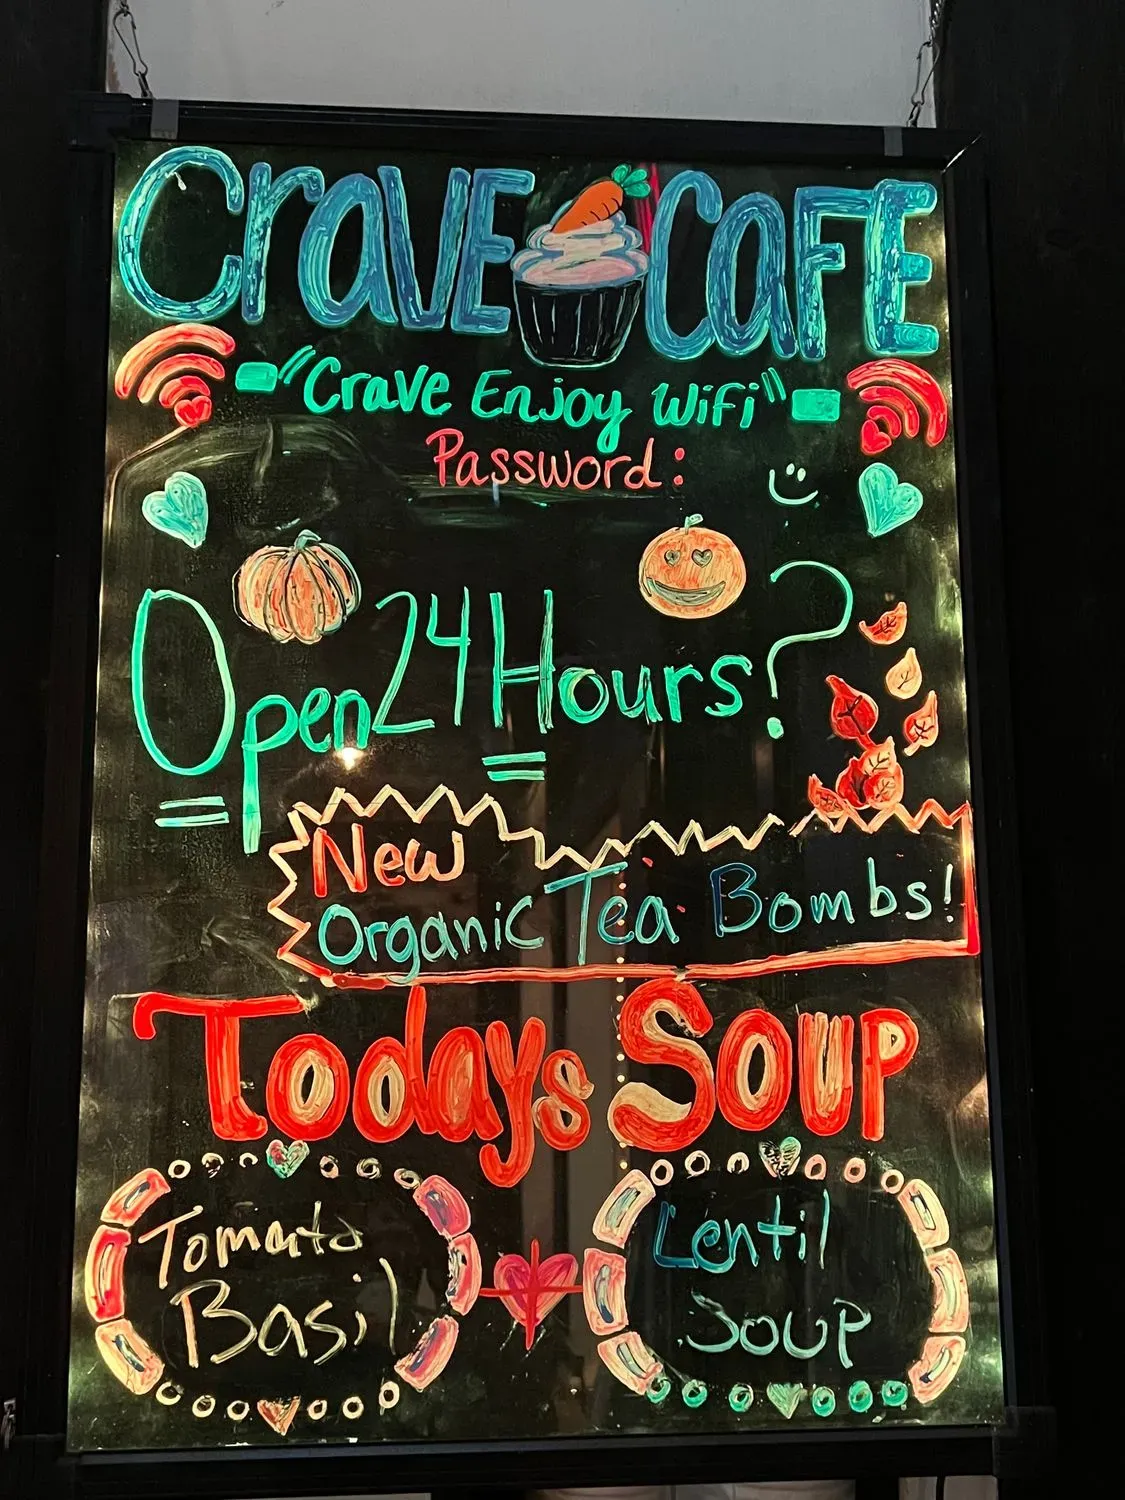 Crave Cafe
"Crave Enjoy Wifi"
Password:
Open 24 Hours?
New
Organic Tea Bombs!
Todays Soup
Tomato
Basil
Lentil
Soup